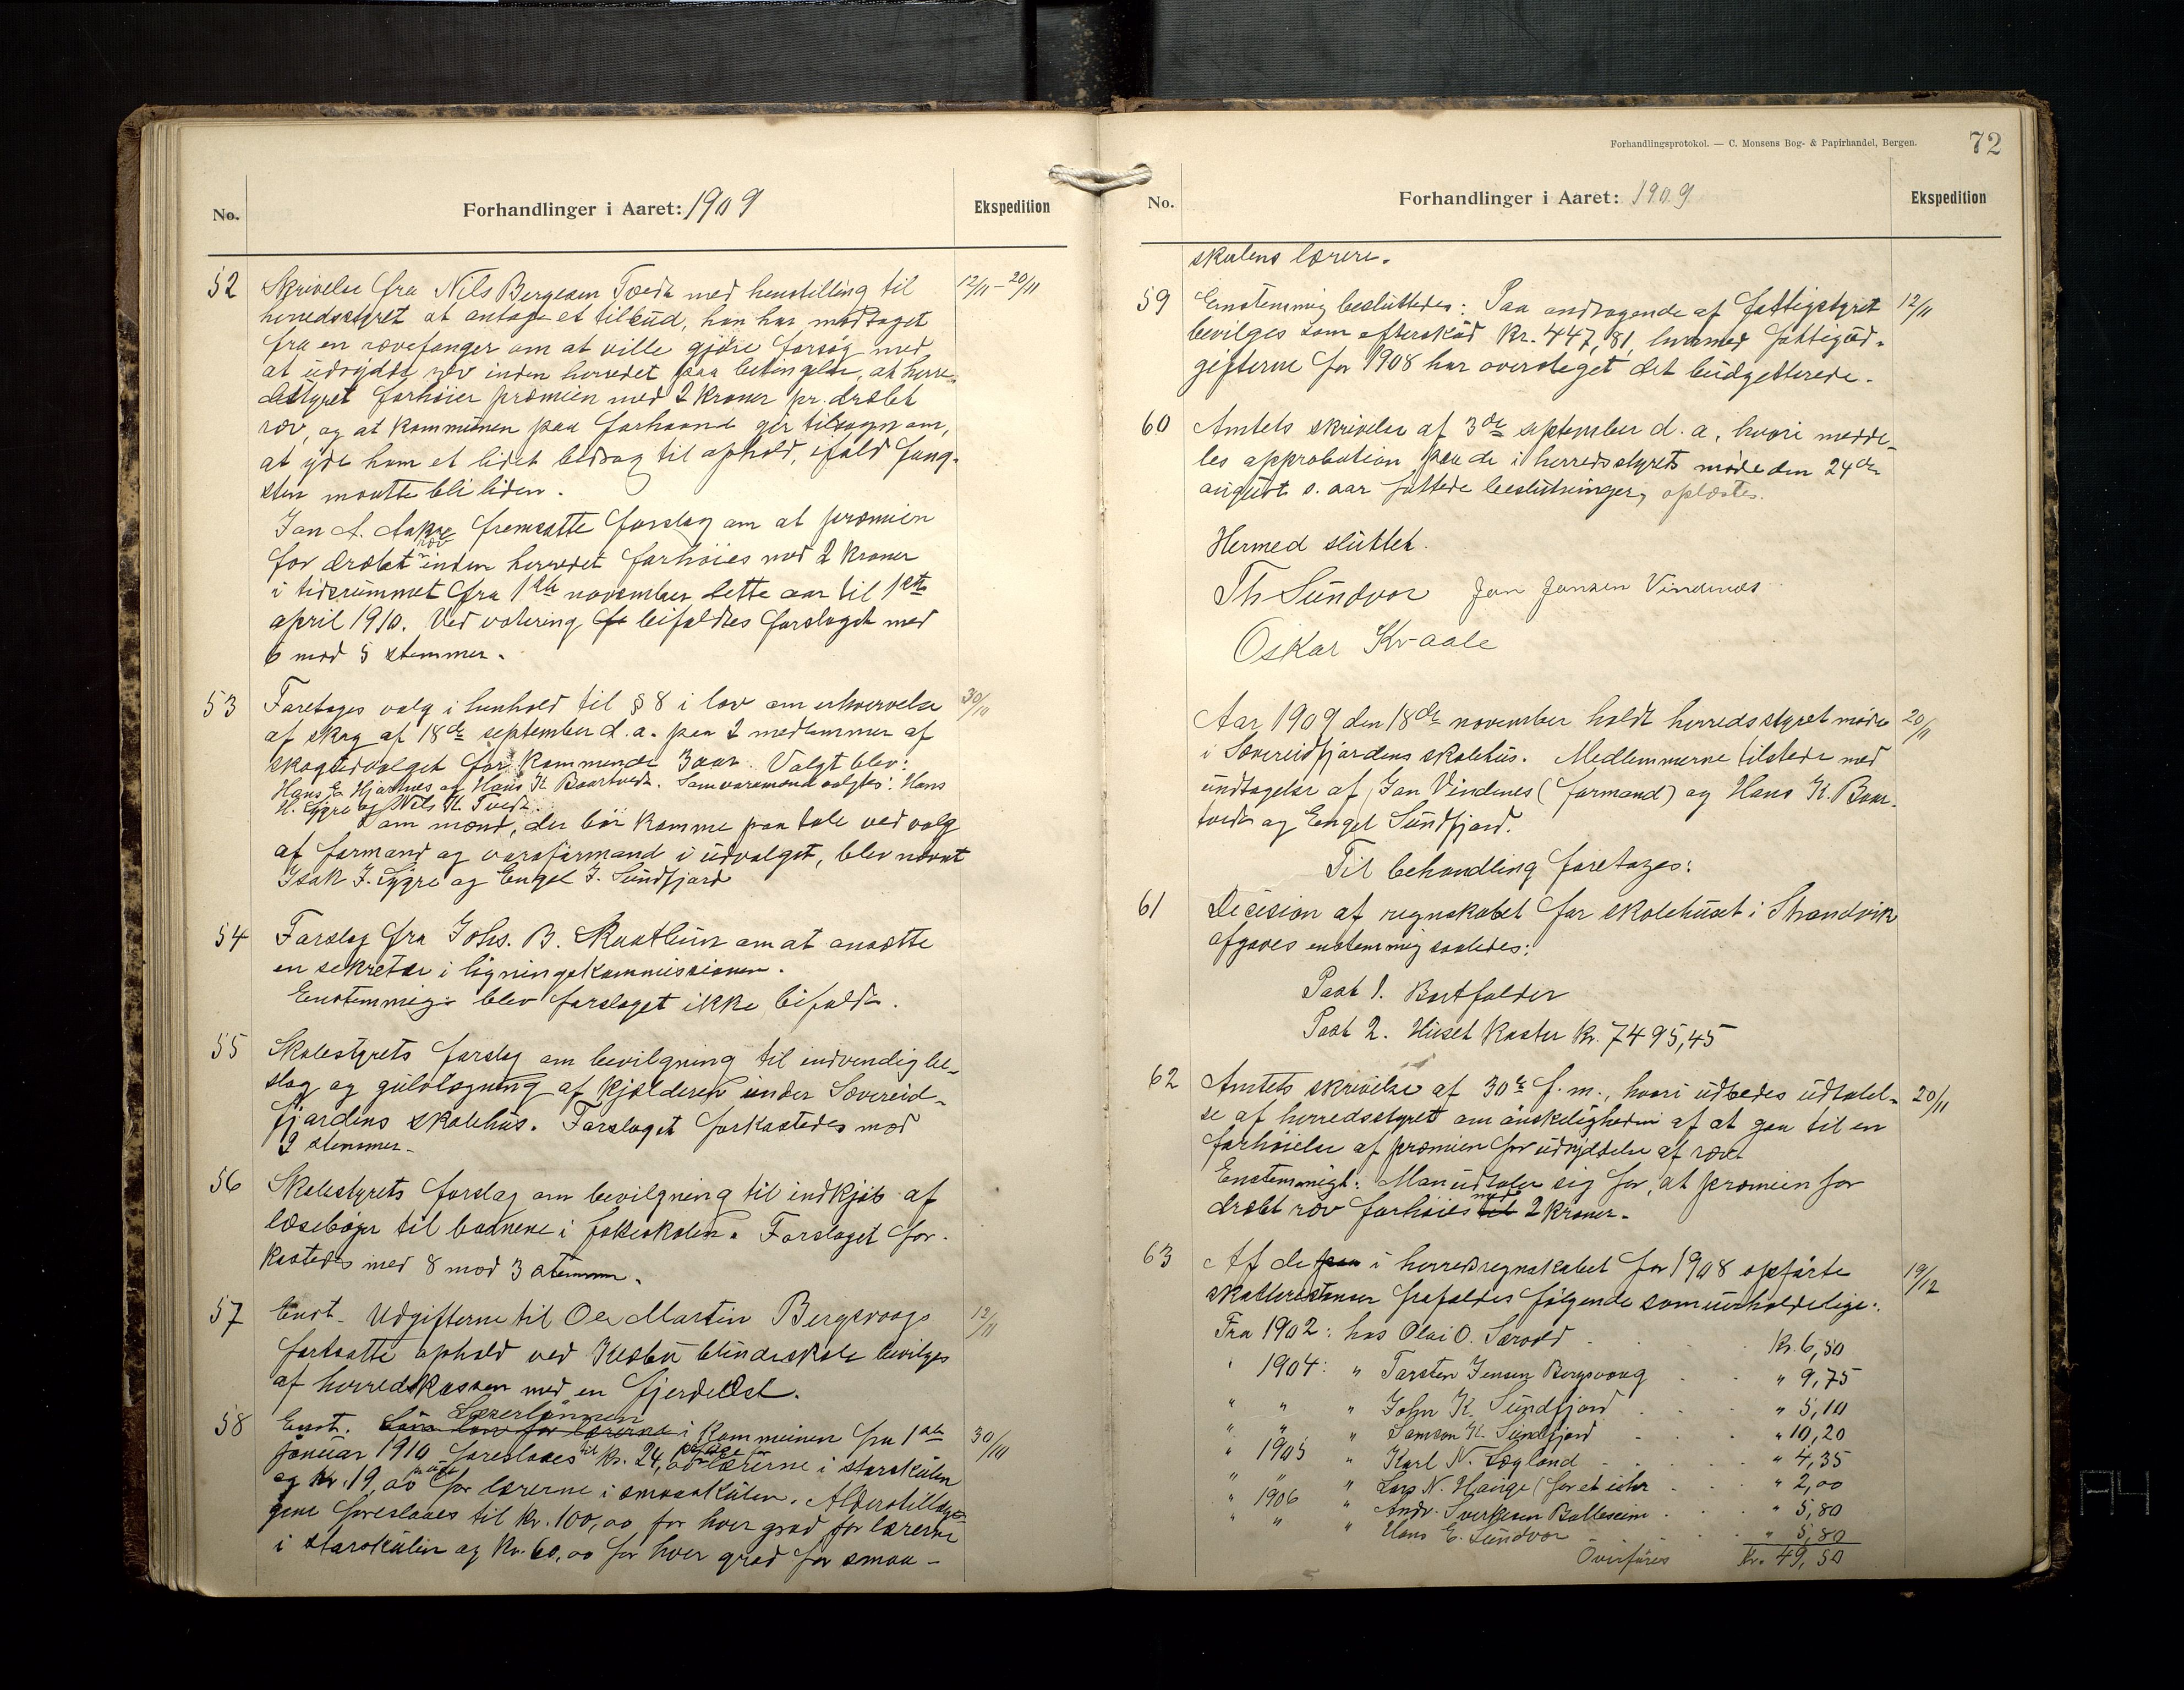 No.
Forhandlinger i Aaret: 1909
Ekspedition
52 Skrivelse fra Nils Bergesen Tvedt med henstilling til 12/11 - 20/11
herredsstyret at antage et tilbud, han har modtaget
fra en rævefanger om at ville gjöre forsög med
at udrydde ræv inden herredet paa betingelse, at herre-
dsstyret forhöier præmien med 2 kroner pr. dræbt
ræv, og at kommunen paa forhaand gir tilsagn om,
at yde ham et lidet bidrag til ophold, ifald fang-
sten maatte bli liden.
Jan A. Aakre fremsatte forslag om at præmien
for dræbt ræv inden herredet forhöies med 2 kroner
i tidsrummet fra 1ste november dette aar til 1ste
april 1910. Ved votering fo bifaldtes forslaget med
6 mod 5 stemmer.
53 Foretages valg i henhold til § 8 i lov om erhvervelse 30/10
af skog af 18de september d. a. paa 2 medlemmer af
skogudvalget for kommende 3 aar. Valgt blev:
Hans E. Hjartnes og Hans K. Baartvedt. Som varamænd valgtes: Hans
H. Sygre og Nils K. Tvedt.
Som mænd, der bör komme paa tale ved valg
af formand og varaformand i udvalget, blev nævnt
Isak J. Sygre og Engel J. Sundfjord
54 Forslag fra Johs. B. Skaathun om at ansætte
en sekretær i ligningskommissionen.
Enstemmig blev forslaget ikke bifaldt.
55 Skolestyrets forslag om bevilgning til indvendig be-
slag og gulvlægning af kjælderen under Sævereid-
fjordens skolehus. Forslaget forkastedes mod
2 stemmer.
56 Skolestyrets forslag om bevilgning til indkjöb af
læseböger til barnene i folkeskolen. Forslaget for-
kastedes med 8 mod 3 stemmer.
57 Enst. Udgifterne til Ole Martin Bergsvaags 12/11
fortsatte ophold ved Huseby blindeskole bevilges
af herredskassen med en fjerdedel.
58 Enst. Lærerlönnen i kommunen fra 1ste 30/10
januar 1910 foreslaaes til kr. 24,00 pr. uge for lærerne i storskulen
og kr. 19,00 pr. uge for lærerne i smaaskulen. Alderstillæg-
gene foreslaaes til kr. 100,00 for hver grad for lærerne
i storskulen og kr. 60,00 for hver grad for smaa-
Forhandlingsprotokol. — C. Monsens Bog- & Papirhandel, Bergen.
72
No.
Forhandlinger i Aaret: 1909
Ekspedition
skulens lærere.
59 Enstemmig besluttedes: Paa andragende af fattigstyret 12/11
bevilges som efterskud kr. 447,81, hvormed fattigud-
gifterne for 1908 har oversteget det budgetterede.
60 Amtets skrivelse af 3de september d. a., hvori medde-
les approbation paa de i herredsstyrets möde den 24de
august s. aar fattede beslutninger, oplæstes.
Hermed sluttet.
Th Sundvor Jan Jansen Vindenes
Oskar Kvaale
Aar 1909 den 18de november holdt herredsstyret möde 20/11
i Sævereidfjordens skolehus. Medlemmerne tilstede med
undtagelse af Jan Vindenes (formand) og Hans K. Baar-
tvedt og Engel Sundfjord.
Til behandling foretages:
61 Decision af regnskabet for skolehuset i Strandvik
afgaves enstemmig saaledes:
Post 1. Bortfalder
Post 2. Huset koster kr. 7495,45
62 Amtets skrivelse af 30te f. m., hvori udbedes udtalel- 20/11
se af herredsstyret om önskeligheden af at gaa til en
forhöielse af præmien for udryddelse af ræv.
Enstemmigt: Man udtaler sig for, at præmien for
dræbt ræv forhöies til med 2 kroner.
63 Af de paa i herredsregnskabet for 1908 opförte 19/12
skatterestanser frafaldes fölgende som uerholdelige:
Fra 1902: hos Olai O. Særvold kr. 6,50
" 1904: " Tarsten Jensen Bergsvaag " 9,75
" " " John K. Sundfjord " 5,10
" " " Samson K. Sundfjord " 10,20
" 1905 " Karl N. Søgland " 4,35
" " " Lars N. Hauge (for et ur " 2,00
" 1906 " Andr. Sverkesen Balleseim " 5,80
" " " Hans E. Sundvor " 5,80
Överföres kr. 49,50